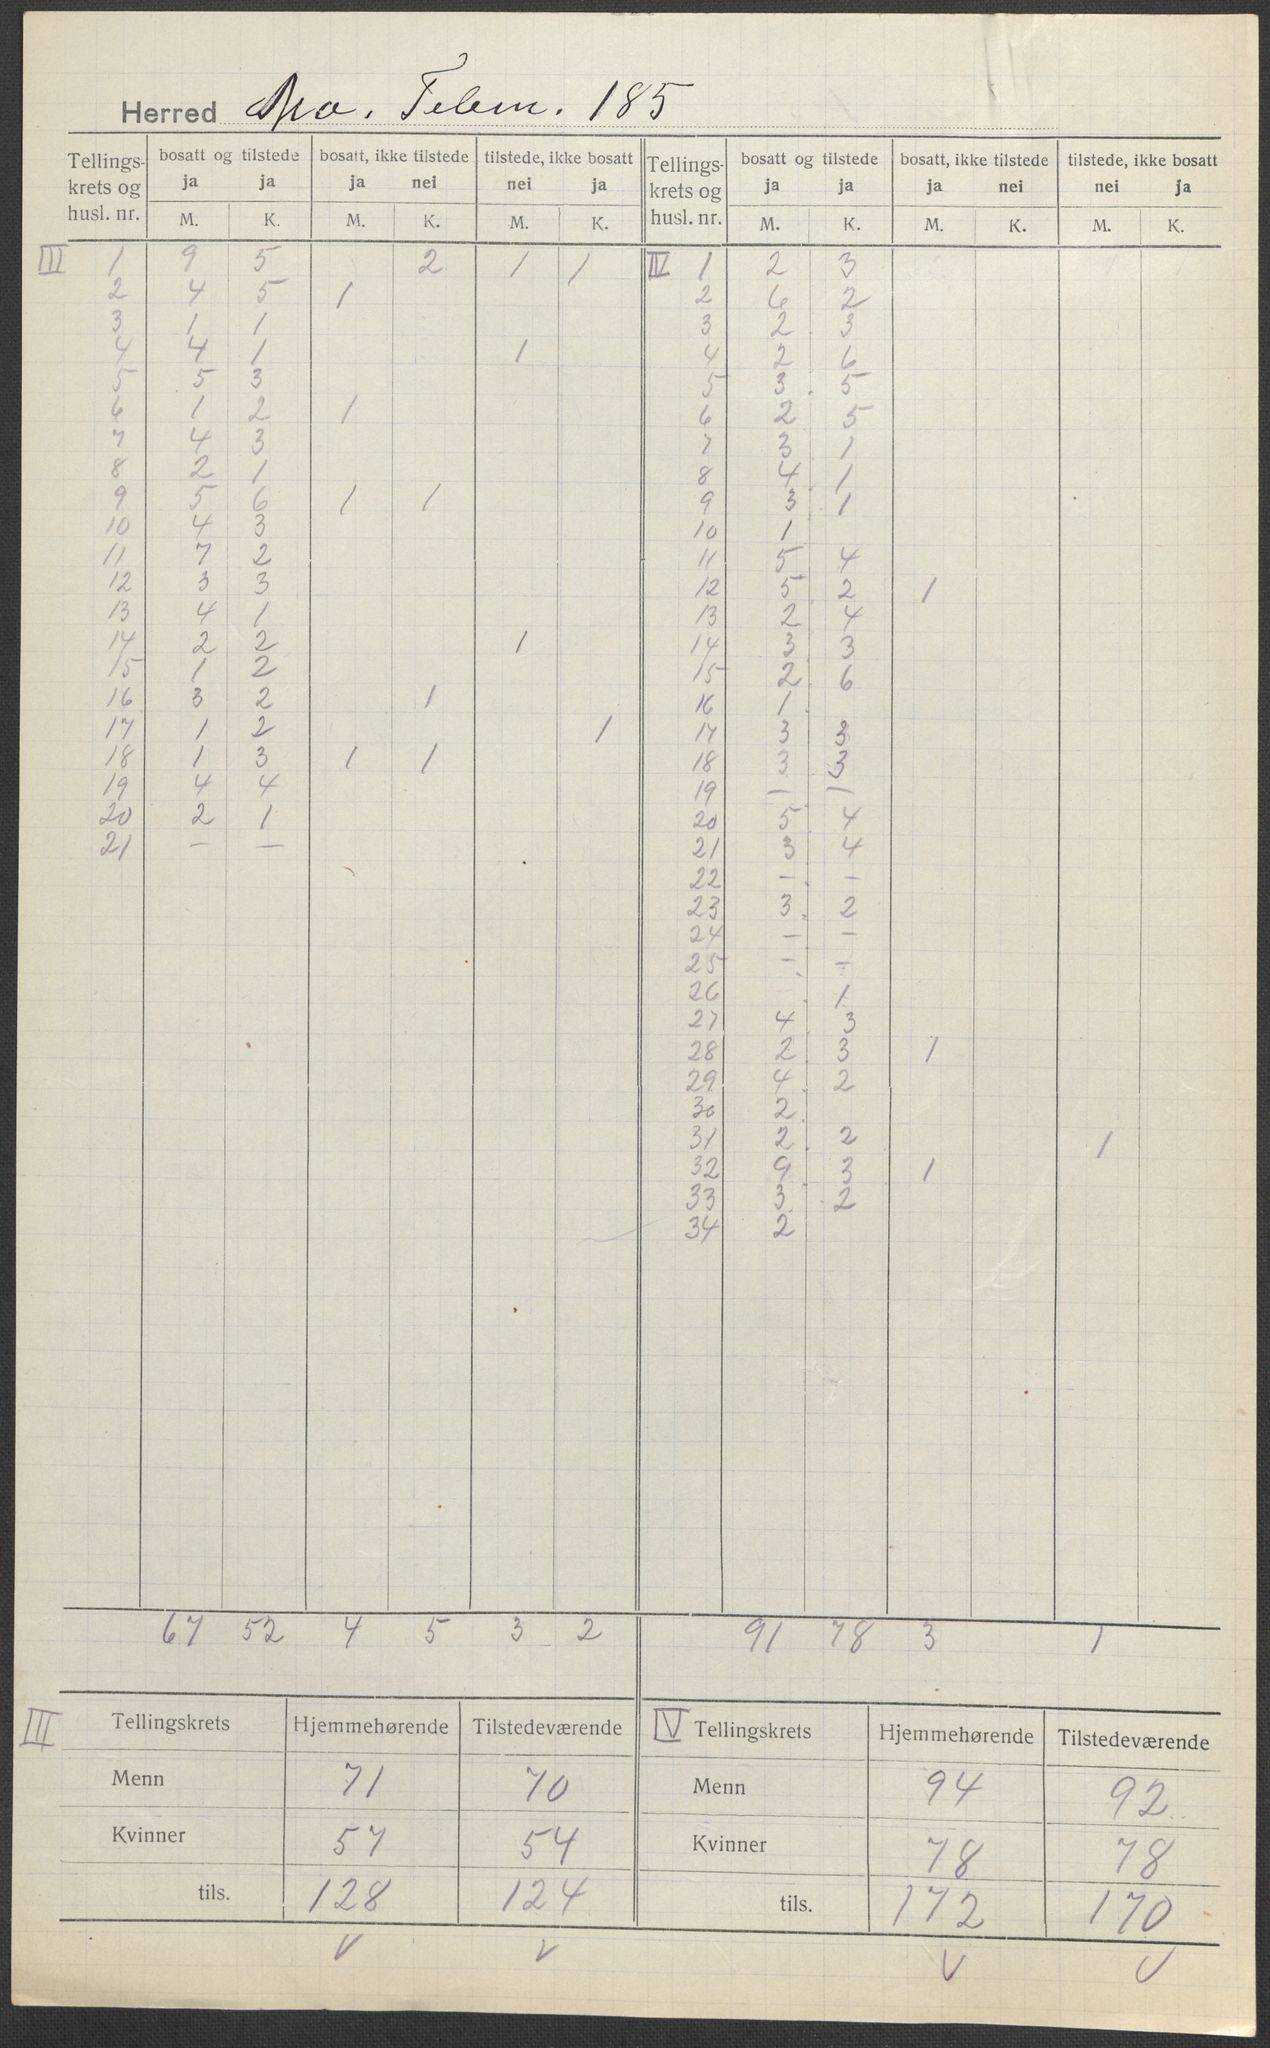 Herred Mo. Telem. 185
Tellings- krets og husl. nr. | bosatt og tilstede ja ja | bosatt, ikke tilstede ja nei | tilstede, ikke bosatt nei ja | Tellings- krets og husl. nr. | bosatt og tilstede ja ja | bosatt, ikke tilstede ja nei | tilstede, ikke bosatt nei ja
M. K. M. K. M. K. M. K. M. K. M. K.
III 1 9 5 2 1 1 IV 1 2 3
2 4 5 1 2 6 2
3 1 1 3 2 3
4 4 1 1 4 2 6
5 5 3 5 3 5
6 1 2 1 6 2 5
7 4 3 7 3 1
8 2 1 8 4 1
9 5 6 1 1 9 3 1
10 4 3 10 1
11 7 2 11 5 4
12 3 3 12 5 2 1
13 4 1 13 2 4
14 2 2 1 14 3 3
15 1 2 15 2 6
16 3 2 1 16 1
17 1 2 1 17 3 3
18 1 3 1 1 18 3 3
19 4 4 19 — 1
20 2 1 20 5 4
21 — — 21 3 4
22 - -
23 3 2
24 - -
25 - -
26 1
27 4 3
28 2 3 1
29 4 2
30 2
31 2 2 1
32 9 3 1
33 3 2
34 2
67 52 4 5 3 2 91 78 3 1
III Tellingskrets Hjemmehørende Tilstedeværende IV Tellingskrets Hjemmehørende Tilstedeværende
Menn 71 70 Menn 94 92
Kvinner 57 54 Kvinner 78 78
tils. 128 124 tils. 172 170